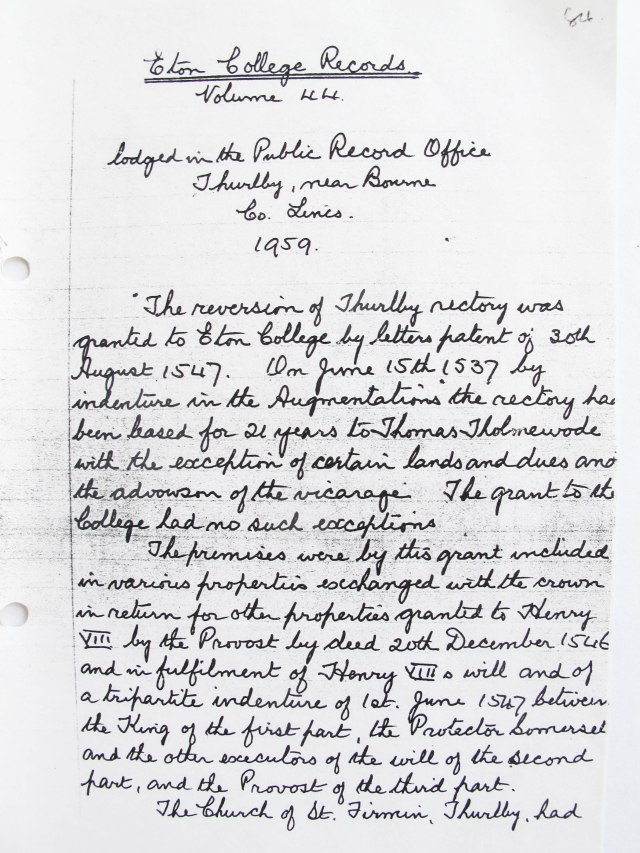 Eton College Records.
Volume 44.
lodged in the Public Record Office
Thurlby, near Bourne
Co. Lincs.
1959.
"The reversion of Thurlby rectory was
granted to Eton College by letters patent of 30th
August 1547. On June 15th 1537 by
indenture in the Augmentations the rectory had
been leased for 21 years to Thomas Tholmewode
with the exception of certain lands and dues and
the advowson of the vicarage The grant to the
College had no such exceptions
The premises were by this grant included
in various properties exchanged with the crown
in return for other properties granted to Henry
VIII by the Provost by deed 20th December 1546
and in fulfilment of Henry VIII s will and of
a tripartite indenture of 1st. June 1547 between
the King of the first part, the Protector Somerset
and the other executors of the will of the second
part, and the Provost of the third part.
The Church of St. Firmin, Thurlby, had